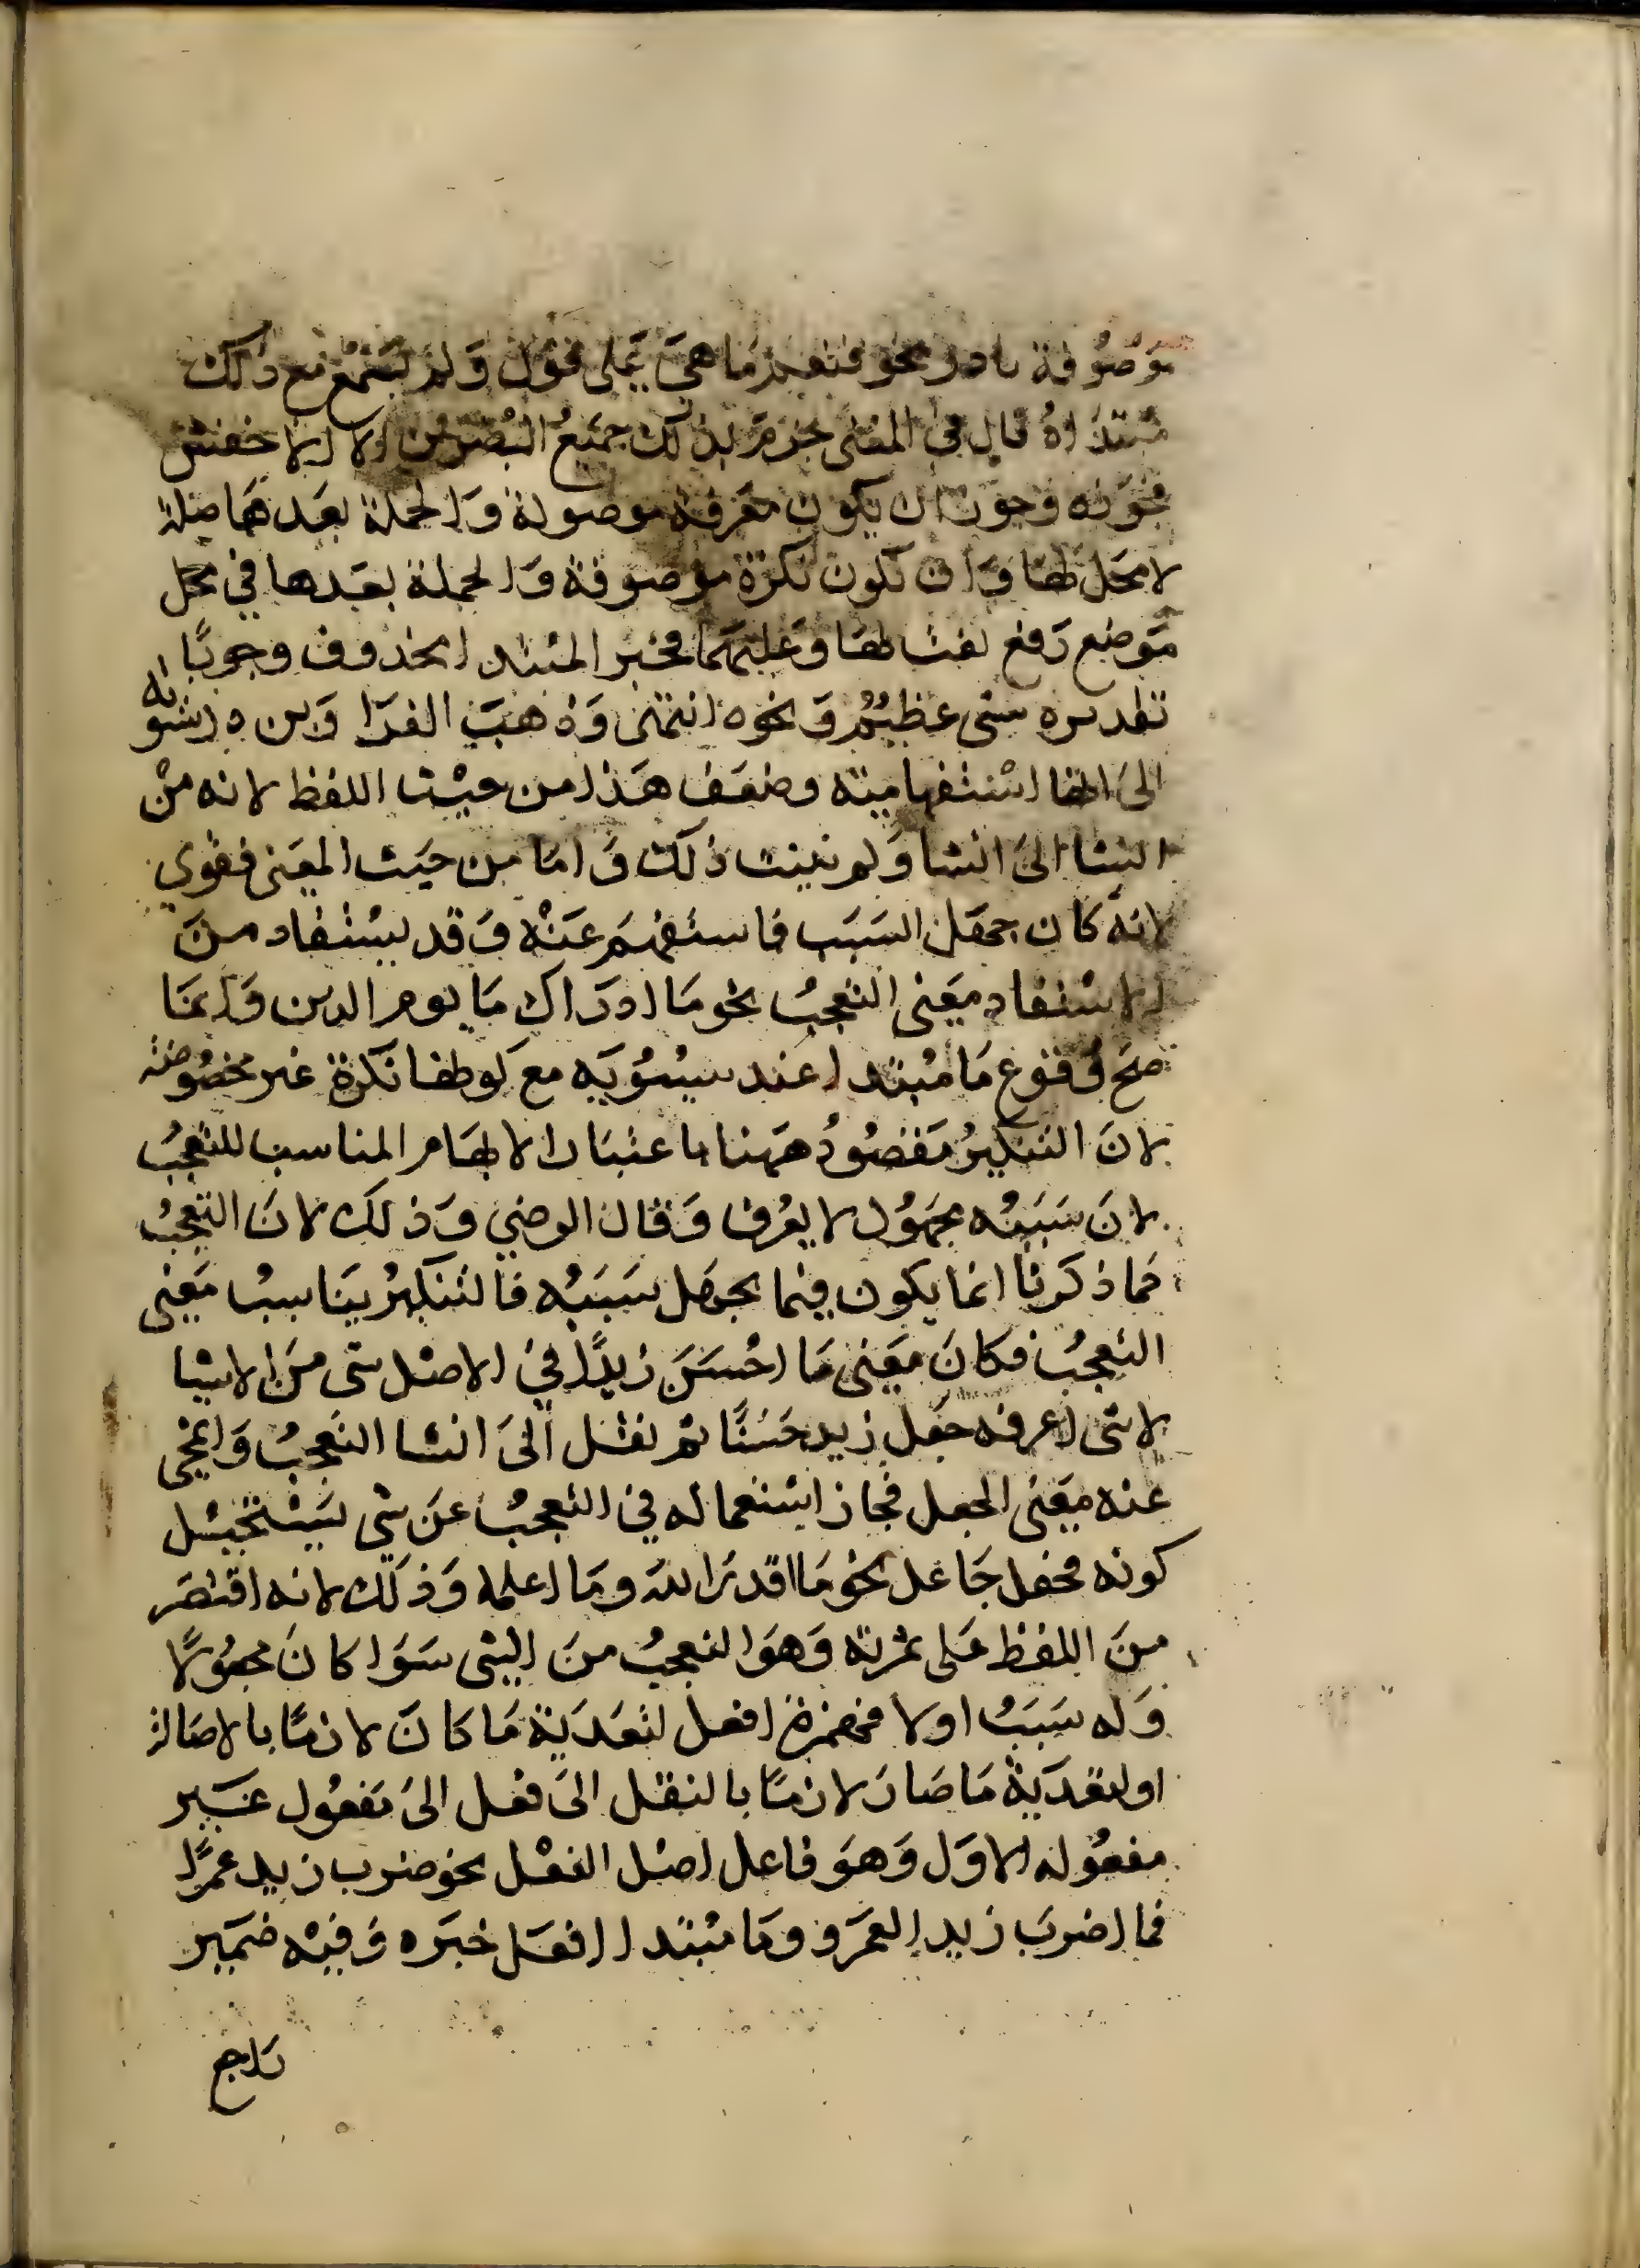 موصوفة نادر نحو فنعما هي على قول ولم يسمع مع ذلك
مبتداة قال في المغني جزم بذلك جميع البصريين الا الاخفش
فجوزه وجوز ان يكون معرفة موصولة والجملة بعدها صلة
لا محل لها وان تكون نكرة موصوفة والجملة بعدها في محل
موضع رفع نعتا لها وعليهما فخبر المبتدا محذوف وجوبًا
تقديره شي عظيم ونحوه انتهى وذهب الفرا وبن درستويه
الى انها استفهامية وضعف هذا من حيث اللفظ لانه من
انشا الى انشا ولم يثبت ذلك واما من حيث المعنى فقوي
لانه كان جهل السبب فاستفهم عنه وقد يستفاد من
الاستفهام معنى التعجب نحو ما ادراك ما يوم الدين وانما
صح وقوع ما مبتدا عند سيبويه مع كونها نكرة غير مخصوصة
لان التنكير مقصود ههنا باعتبار الابهام المناسب للتعجب
لان سببه مجهول لا يعرف وقال الرضي وذلك لان التعجب
كما ذكرنا انما يكون فيما يجهل سببه فالتنكير يناسب معنى
التعجب فكان معنى ما احسن زيدًا في الاصل شي من الاشيا
لا شي اعرفه جعل زيد حسنًا ثم نقل الى انشا التعجب وانمحى
عنه معنى الجعل فجاز استعماله في التعجب عن شي يستحيل
كونه بجعل جاعل نحو ما اقدر الله وما اعلمه وذلك لانه اقتصر
من اللفظ على ثمرته وهو التعجب من الشي سوا كان مجهولًا
وله سبب اولا فهمزة افعل لتعدية ما كان لازمًا بالاصالة
او لتعدية ما صار لازمًا بالنقل الى فعل الى مفعول غير
مفعوله الاول وهو فاعل اصل الفعل نحو ضرب زيد عمرًا
فما اضرب زيدا لعمرو وما مبتدا افعل خبره وفيه ضمير
راجع